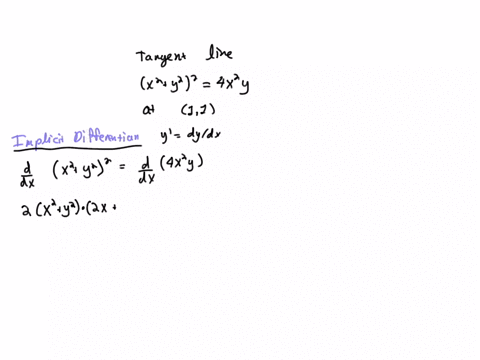 Tangent line
(x²+y²)² = 4x²y
at (1,1)
Implicit Differention y' = dy/dx
d/dx (x²+y²)² = d/dx (4x²y)
2(x²+y²)·(2x +